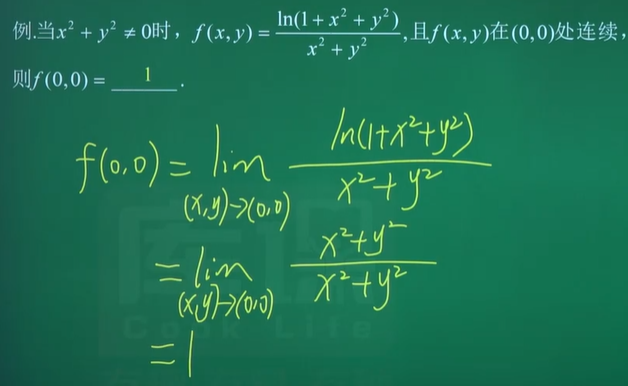 例.当x² + y² ≠ 0时，f(x, y) = ln(1 + x² + y²) / (x² + y²) ,且f(x, y)在(0,0)处连续，
则f(0,0) = 1 .
f(0,0) = lim (x,y)→(0,0) ln(1+x²+y²) / (x²+y²)
= lim (x,y)→(0,0) (x²+y²) / (x²+y²)
= 1
Cook Life